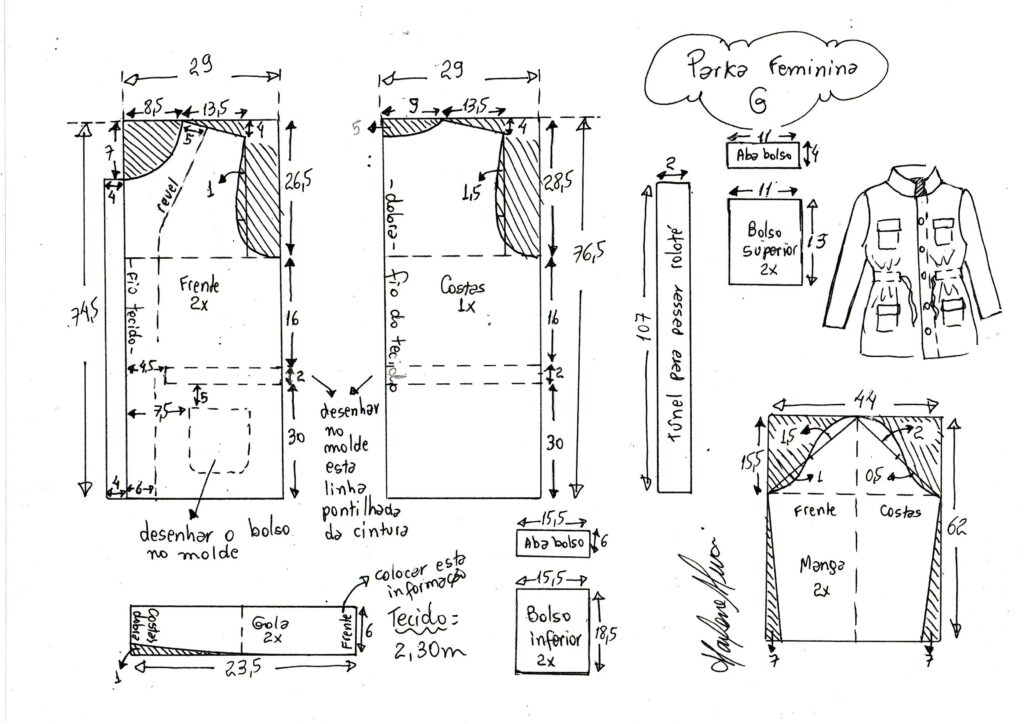 Parka Feminina
G
29
8,5
13,5
4
7
5
4
1
revel
26,5
74,5
Frente
2x
-Fio tecido-
16
4,5
2
5
7,5
30
4
6
desenhar o bolso
no molde
29
9
13,5
5
4
1,5
28,5
76,5
-dobra-
fio do tecido
Costas
1x
16
2
30
desenhar
no
molde
esta
linha
pontilhada
da cintura
2
107
Túnel para passar roloté
11
Aba bolso
4
11
Bolso
superior
2x
13
44
15,5
1,5
2
1
0,5
Frente
Costas
62
Manga
2x
7
7
15,5
Aba bolso
6
15,5
Bolso
inferior
2x
18,5
colocar esta
informação
dobra
Costas
Gola
2x
Frente
6
1
23,5
Tecido=
2,30m